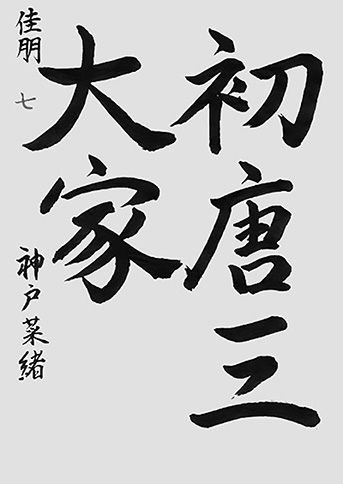 初唐三
大家
佳朋
七
神戸菜緒